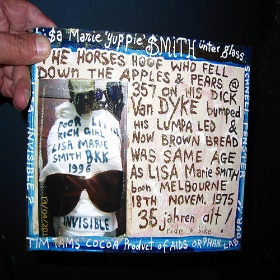 Li$a Marie 'yuppie' $MITH unter glass
THE HORSES HOOF WHO FELL
DOWN THE APPLES & PEARS @
357 ON HIS DICK
Van DYKE bumped
HIS LUMPA LED &
NOW BROWN BREAD
WAS SAME AGE
AS LISA Marie SMITH
born MELBOURNE
18TH NOVEM. 1975
36 jahren alt!
ride a bike
POOR
RICH GIRL
LISA MARIE
SMITH BKK
1996
INVISIBLE
INVISIBLE?
TIM TAMS COCOA Product of AIDS ORPHAN LAB